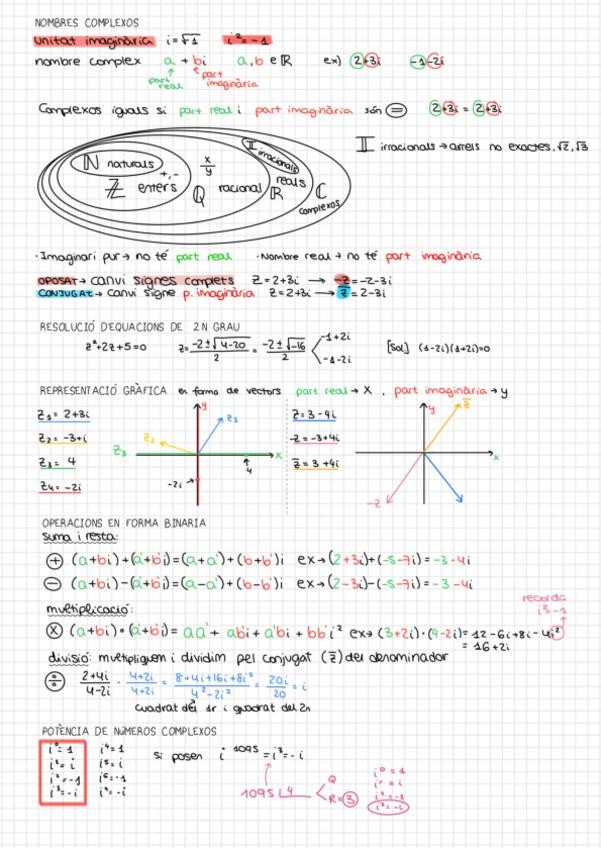 NOMBRES COMPLEXOS
unitat imaginària i=√-1 i²=-1
nombre complex a + bi a,b e ℝ ex) 2+3i -1-2i
part real part imaginària
Complexos iguals si part real i part imaginària són = 2+3i = 2+3i
ℕ naturals
ℤ enters +,-
ℚ racional x/y
𝕀 irracionals
ℝ reals
ℂ complexos
𝕀 irracionals → arrels no exactes, √2, √3
· Imaginari pur → no té part real · Nombre real → no té part imaginària
OPOSAT → canvi signes complets Z=2+3i → -Z=-2-3i
CONJUGAT → canvi signe p. imaginària Z=2+3i → z̅=2-3i
RESOLUCIÓ D'EQUACIONS DE 2N GRAU
z²+2z+5=0 z=(-2±√4-20)/2=(-2±√-16)/2 -1+2i
-1-2i
[Sol] (1-2i)(1+2i)=0
REPRESENTACIÓ GRÀFICA en forma de vectors part real → X , part imaginària → y
Z₁ = 2+3i
Z₂ = -3+i
Z₃ = 4
Z₄ = -2i
y z₁ z₂ Z₃ x 4 -2i
Z = 3-4i
-z = -3+4i
z̅ = 3+4i
y z̅ x -z
OPERACIONS EN FORMA BINARIA
suma i resta:
+ (a+bi)+(a'+b'i)=(a+a')+(b+b')i ex→(2+3i)+(-5-7i)=-3-4i
- (a+bi)-(a'+b'i)=(a-a')+(b-b')i ex→(2-3i)-(-5-7i)=-3-4i
multiplicació:
recorda i²-1
x (a+bi)•(a'+b'i)= aa'+ abi + a'bi + bb'i² ex→ (3+2i)·(4-2i)=12-6i+8i-4i²
= 16+2i
divisió: multipliquem i dividim pel conjugat (z̅) del denominador
÷ (2+4i)/(4-2i) · (4+2i)/(4+2i) = (8+4i+16i+8i²)/(4²-2i²) = 20i/20 = i
cuadrat del 1r i quadrat del 2n
POTÈNCIA DE NÚMEROS COMPLEXOS
i⁰=1 i⁴=1
i¹=i i⁵=i
i²=-1 i⁶=-1
i³=-i i⁷=-i
si posen i¹⁰⁹⁵=i³=-i
1095 4 Q
R=3
i⁰=1
i¹=i
i²=-1
i³=-i